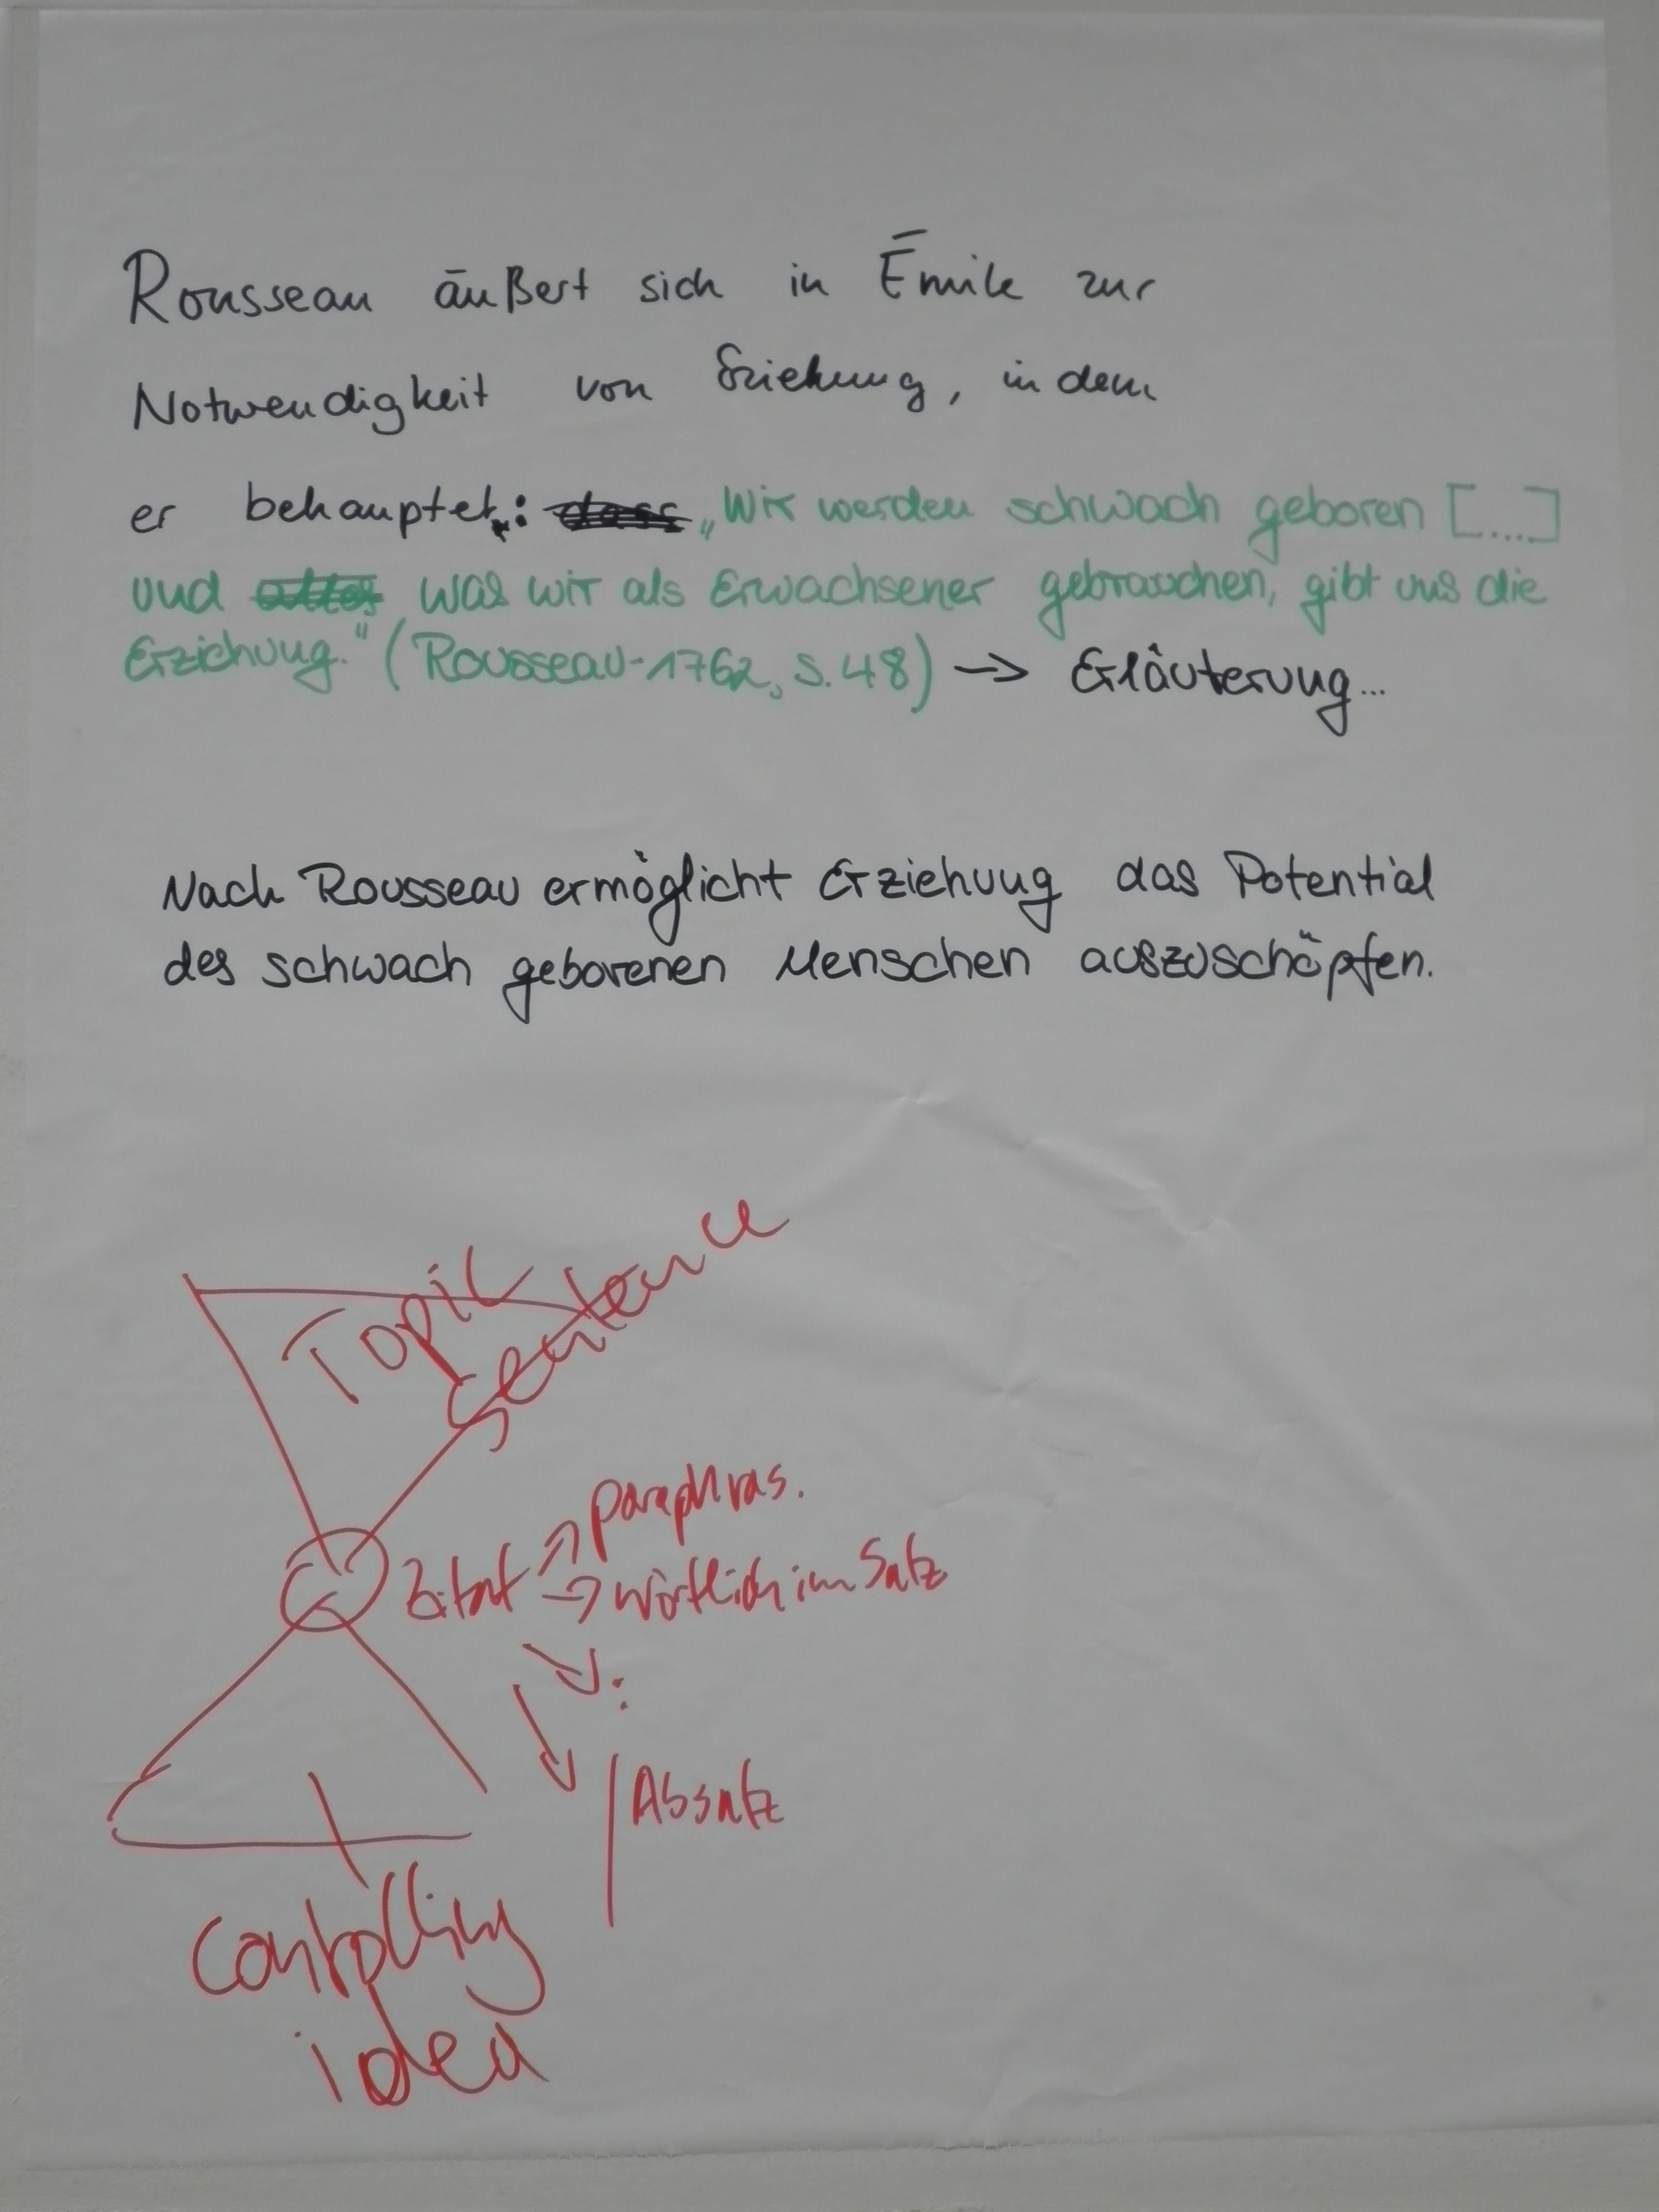 Rousseau äußert sich in Émile zur
Notwendigkeit von Erziehung, in dem
er behauptet: dass „Wir werden schwach geboren [....]
und alles was wir als Erwachsener gebrauchen, gibt uns die
Erziehung." (Rousseau-1762, S.48) → Erläuterung...
Nach Rousseau ermöglicht Erziehung das Potential
des schwach geborenen Menschen auszuschöpfen.
Topic
Sentence
paraphras.
Zitat → wörtlich im Satz
:
Absatz
Controlling
idea